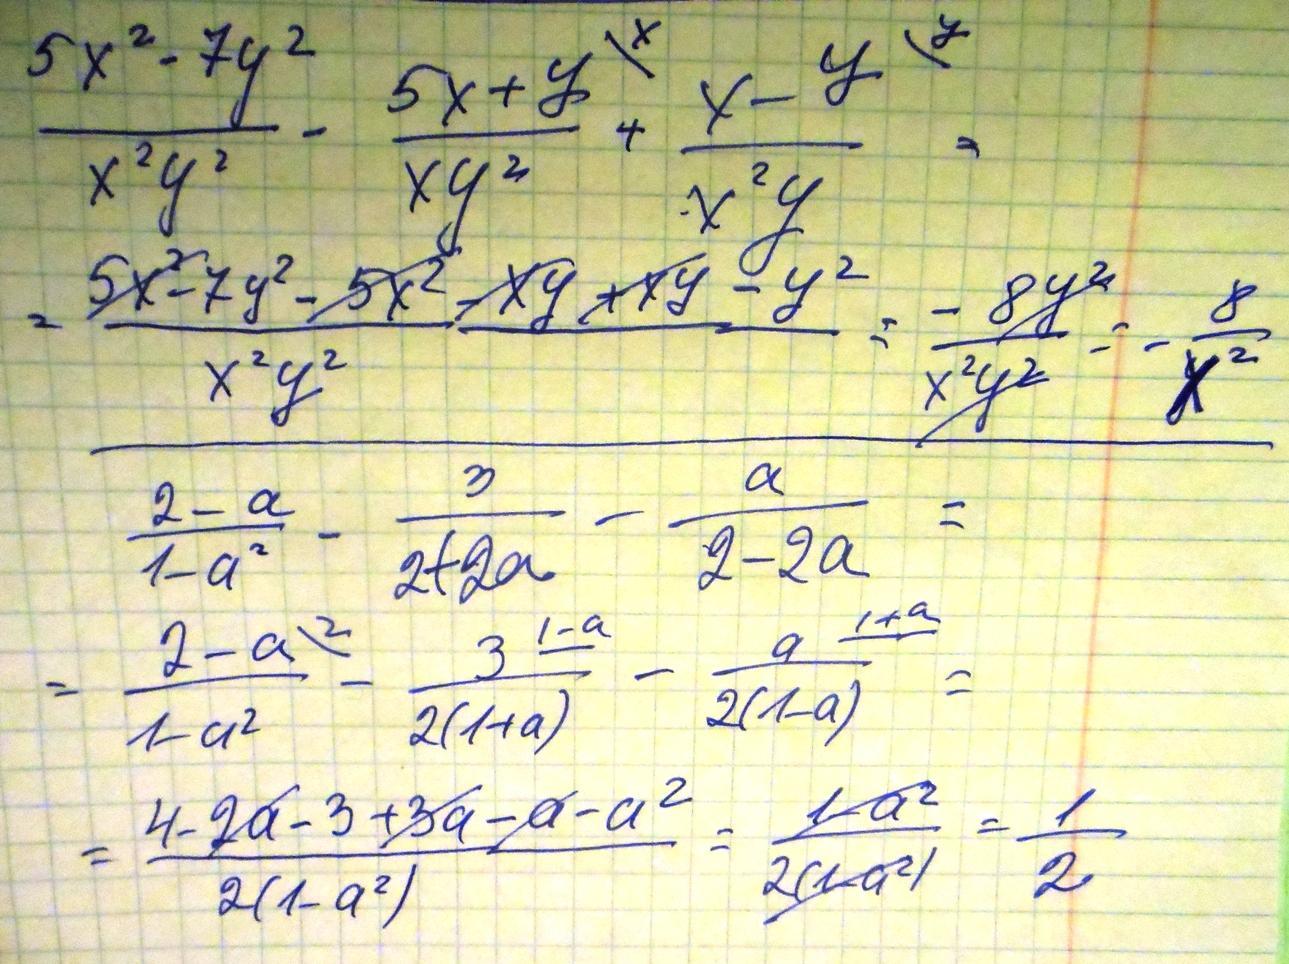 (5x² - 7y²)/(x²y²) - (5x + y)/(xy²) \x + (x - y)/(x²y) \y =
= (5x² - 7y² - 5x² - xy + xy - y²)/(x²y²) = (-8y²)/(x²y²) = - 8/x²
(2 - a)/(1 - a²) - 3/(2 + 2a) - a/(2 - 2a) =
= (2 - a)/(1 - a²) \2 - 3/(2(1 + a)) 1-a - a/(2(1 - a)) 1+a =
= (4 - 2a - 3 + 3a - a - a²)/(2(1 - a²)) = (1 - a²)/(2(1 - a²)) = 1/2